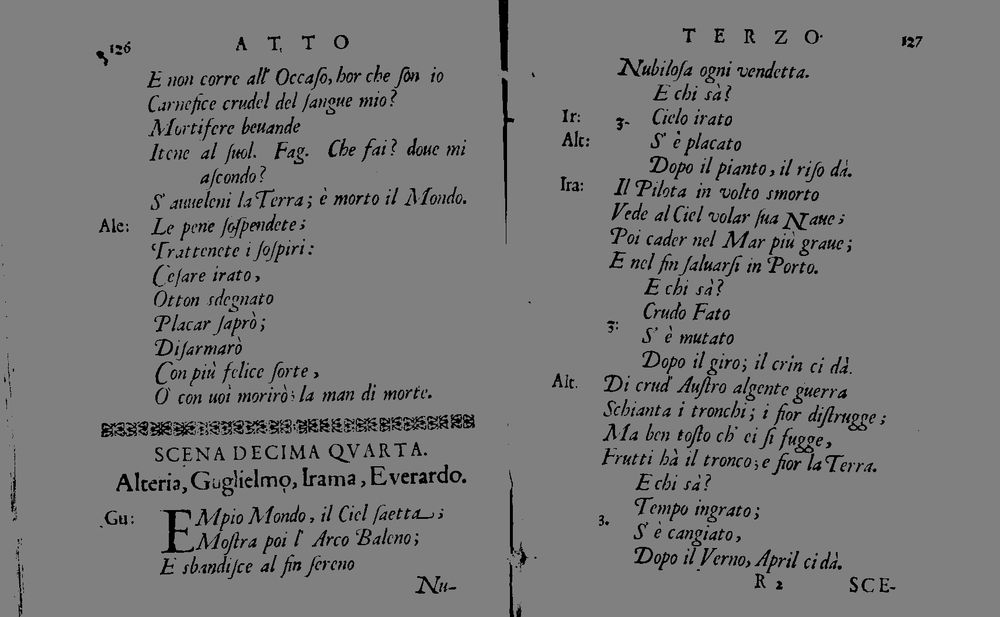 126 ATTO
E non corre all' Occaſo, hor che ſon io
Carnefice crudel del ſangue mio?
Mortifere beuande
Itene al ſuol. Fag. Che fai? doue mi
aſcondo?
S' auueleni la Terra; è morto il Mondo.
Ale: Le pene ſoſpendete;
Trattenete i ſoſpiri:
Ceſare irato,
Otton sdegnato
Placar ſaprò;
Diſarmarò
Con più felice ſorte,
O con uoi morirò; la man di morte.
SCENA DECIMA QVARTA.
Alteria, Guglielmo, Irama, Everardo.
Gu: EMpio Mondo, il Ciel ſaetta;
Moſtra poi l' Arco Baleno;
E sbandiſce al fin ſereno
Nu-
TERZO 127
Nubiloſa ogni vendetta.
E chi sà?
Ir: 3- Cielo irato
Alt: S' è placato
Dopo il pianto, il riſo dà.
Ira: Il Pilota in volto smorto
Vede al Ciel volar ſua Naue;
Poi cader nel Mar più graue;
E nel fin ſaluarſi in Porto.
E chi sà?
Crudo Fato
3: S' è mutato
Dopo il giro; il crin ci dà.
Alt. Di crud' Auſtro algente guerra
Schianta i tronchi; i fior diſtrugge;
Ma ben toſto ch' ei ſi fugge,
Frutti hà il tronco; e fior la Terra.
E chi sà?
Tempo ingrato;
3. S' è cangiato,
Dopo il Verno, April ci dà.
R 2 SCE-